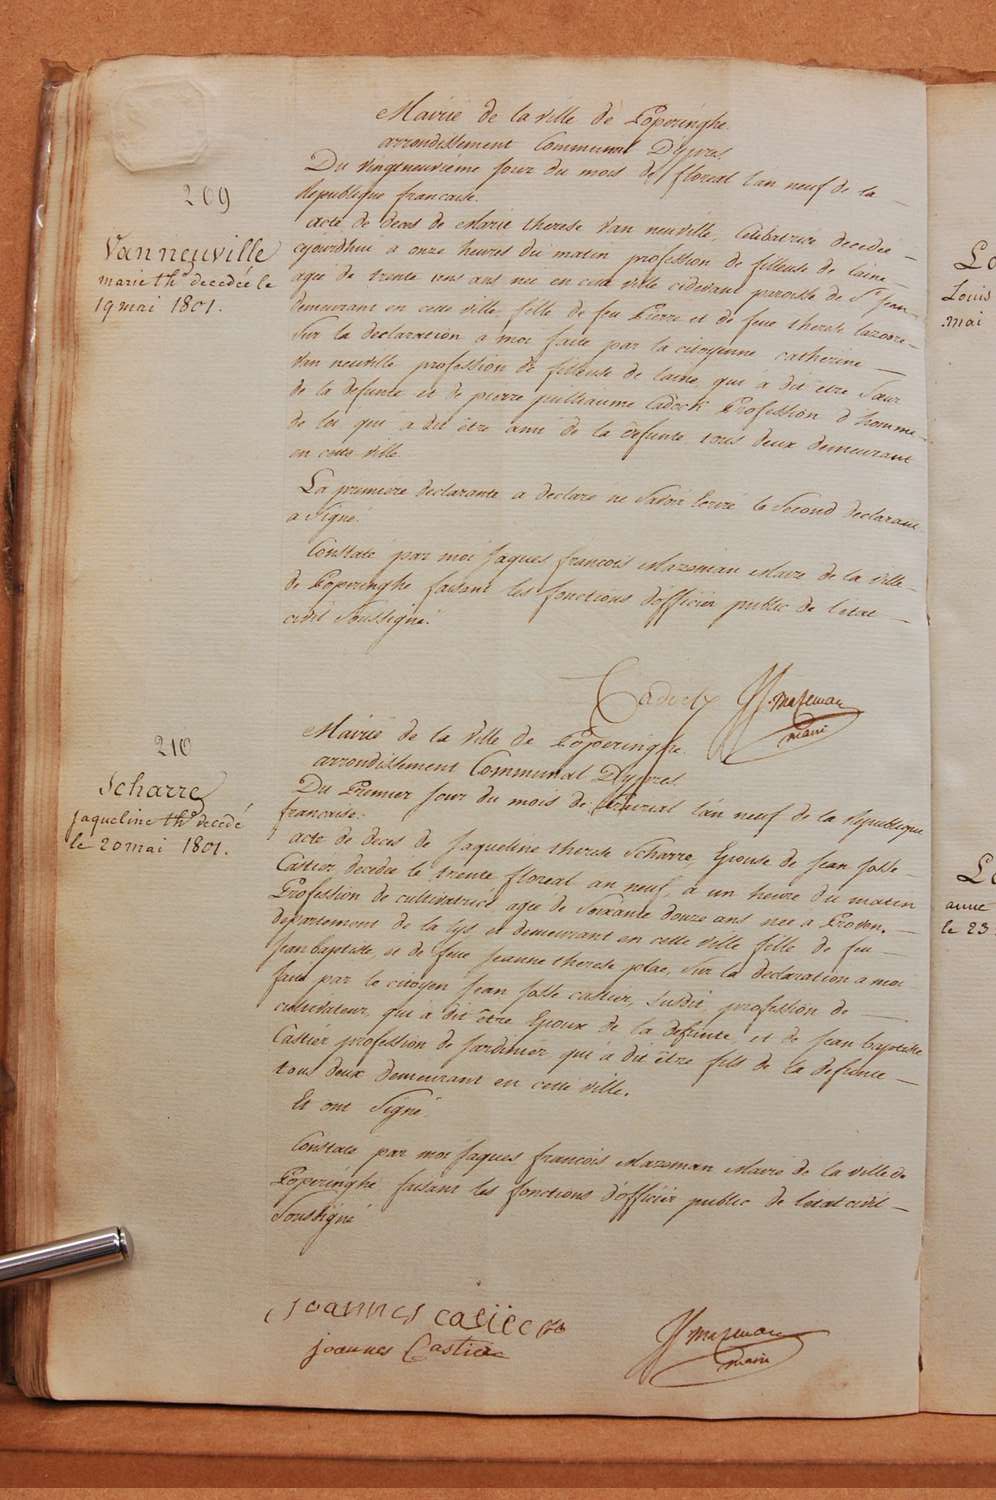 209
Vanneuville
marie th.e decedée le
19 mai 1801.
Mairie de la ville de Poperinghe
arrondissement Communal D'ypres
Du vingtneuvieme jour du mois de floreal l'an neuf de la
Republique francaise.
acte de deces de Marie therese Van neuville, Celibatrice decedee
ajourdhui a onze heures du matin profession de filleuse de laine
age de trente ans nee en cette ville cidevant paroisse de St Jean
demeurant en cette ville, fille de feu Pierre et de feue therese
Sur la declaration a moi faite par la citoyenne catherine
Van neuville profession de filleuse de laine, qui a dit être Sœur
de la defunte et de pierre guilliaume Cadock Profession d'homme
de loi qui a dit être ami de la defunte, tous deux demeurant
en cette ville.
La premiere declarante a declaré ne Savoir Ecrire le Second declarant
a Signé.
Constaté par moi Jaques francois Mazeman Maire de la ville
de Poperinghe faisant les fonctions d'officier public de l'etat
civil Soussigné.
mazeman
maire
210
Scharre
jaqueline th.e decedé
le 20 mai 1801.
Mairie de la Ville de Poperinghe
arrondissement Communal D'ypres
Du Premier jour du mois de Prairial l'an neuf de la Republique
francaise.
acte de deces de Jaqueline therese Scharre, Epouse de Jean Josse
Castier decedée le trente floreal an neuf, a un heure du matin
Profession de cultivatrice, age de Soixante douze ans nee a Proven,
departement de la lys et demeurant en cette ville fille de feu
jean baptiste, et de feue jeanne therese, Sur la declaration a moi
faite par le citoyen Jean Josse castier, susdit profession de
cultivateur, qui a dit être Epoux de la defunte, et de Jean baptiste
Castier profession de Jardinier, qui a dit être fils de la defunte
tous deux demeurant en cette ville.
Et ont Signé.
Constaté par moi Jaques francois Mazeman Maire de la ville de
Poperinghe faisant les fonctions d'officier public de l'etat civil
Soussigné
joannes
joannes Castier
mazeman
maire
Louis
mai
anne
le 23